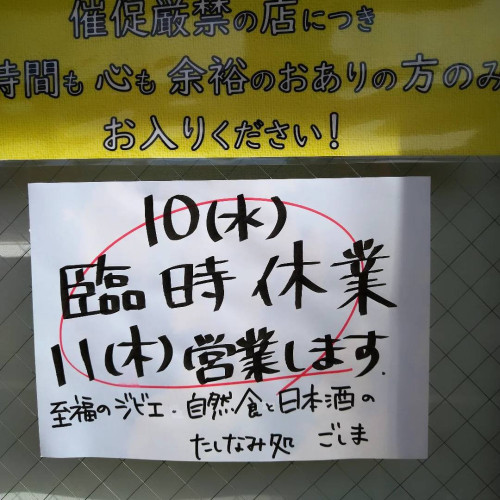 催促厳禁の店につき
時間も心も余裕のおありの方のみ
お入りください!
10(水)
臨時休業
11(木)営業します.
至福のジビエ・自然食と日本酒の
たしなみ処 ごしま